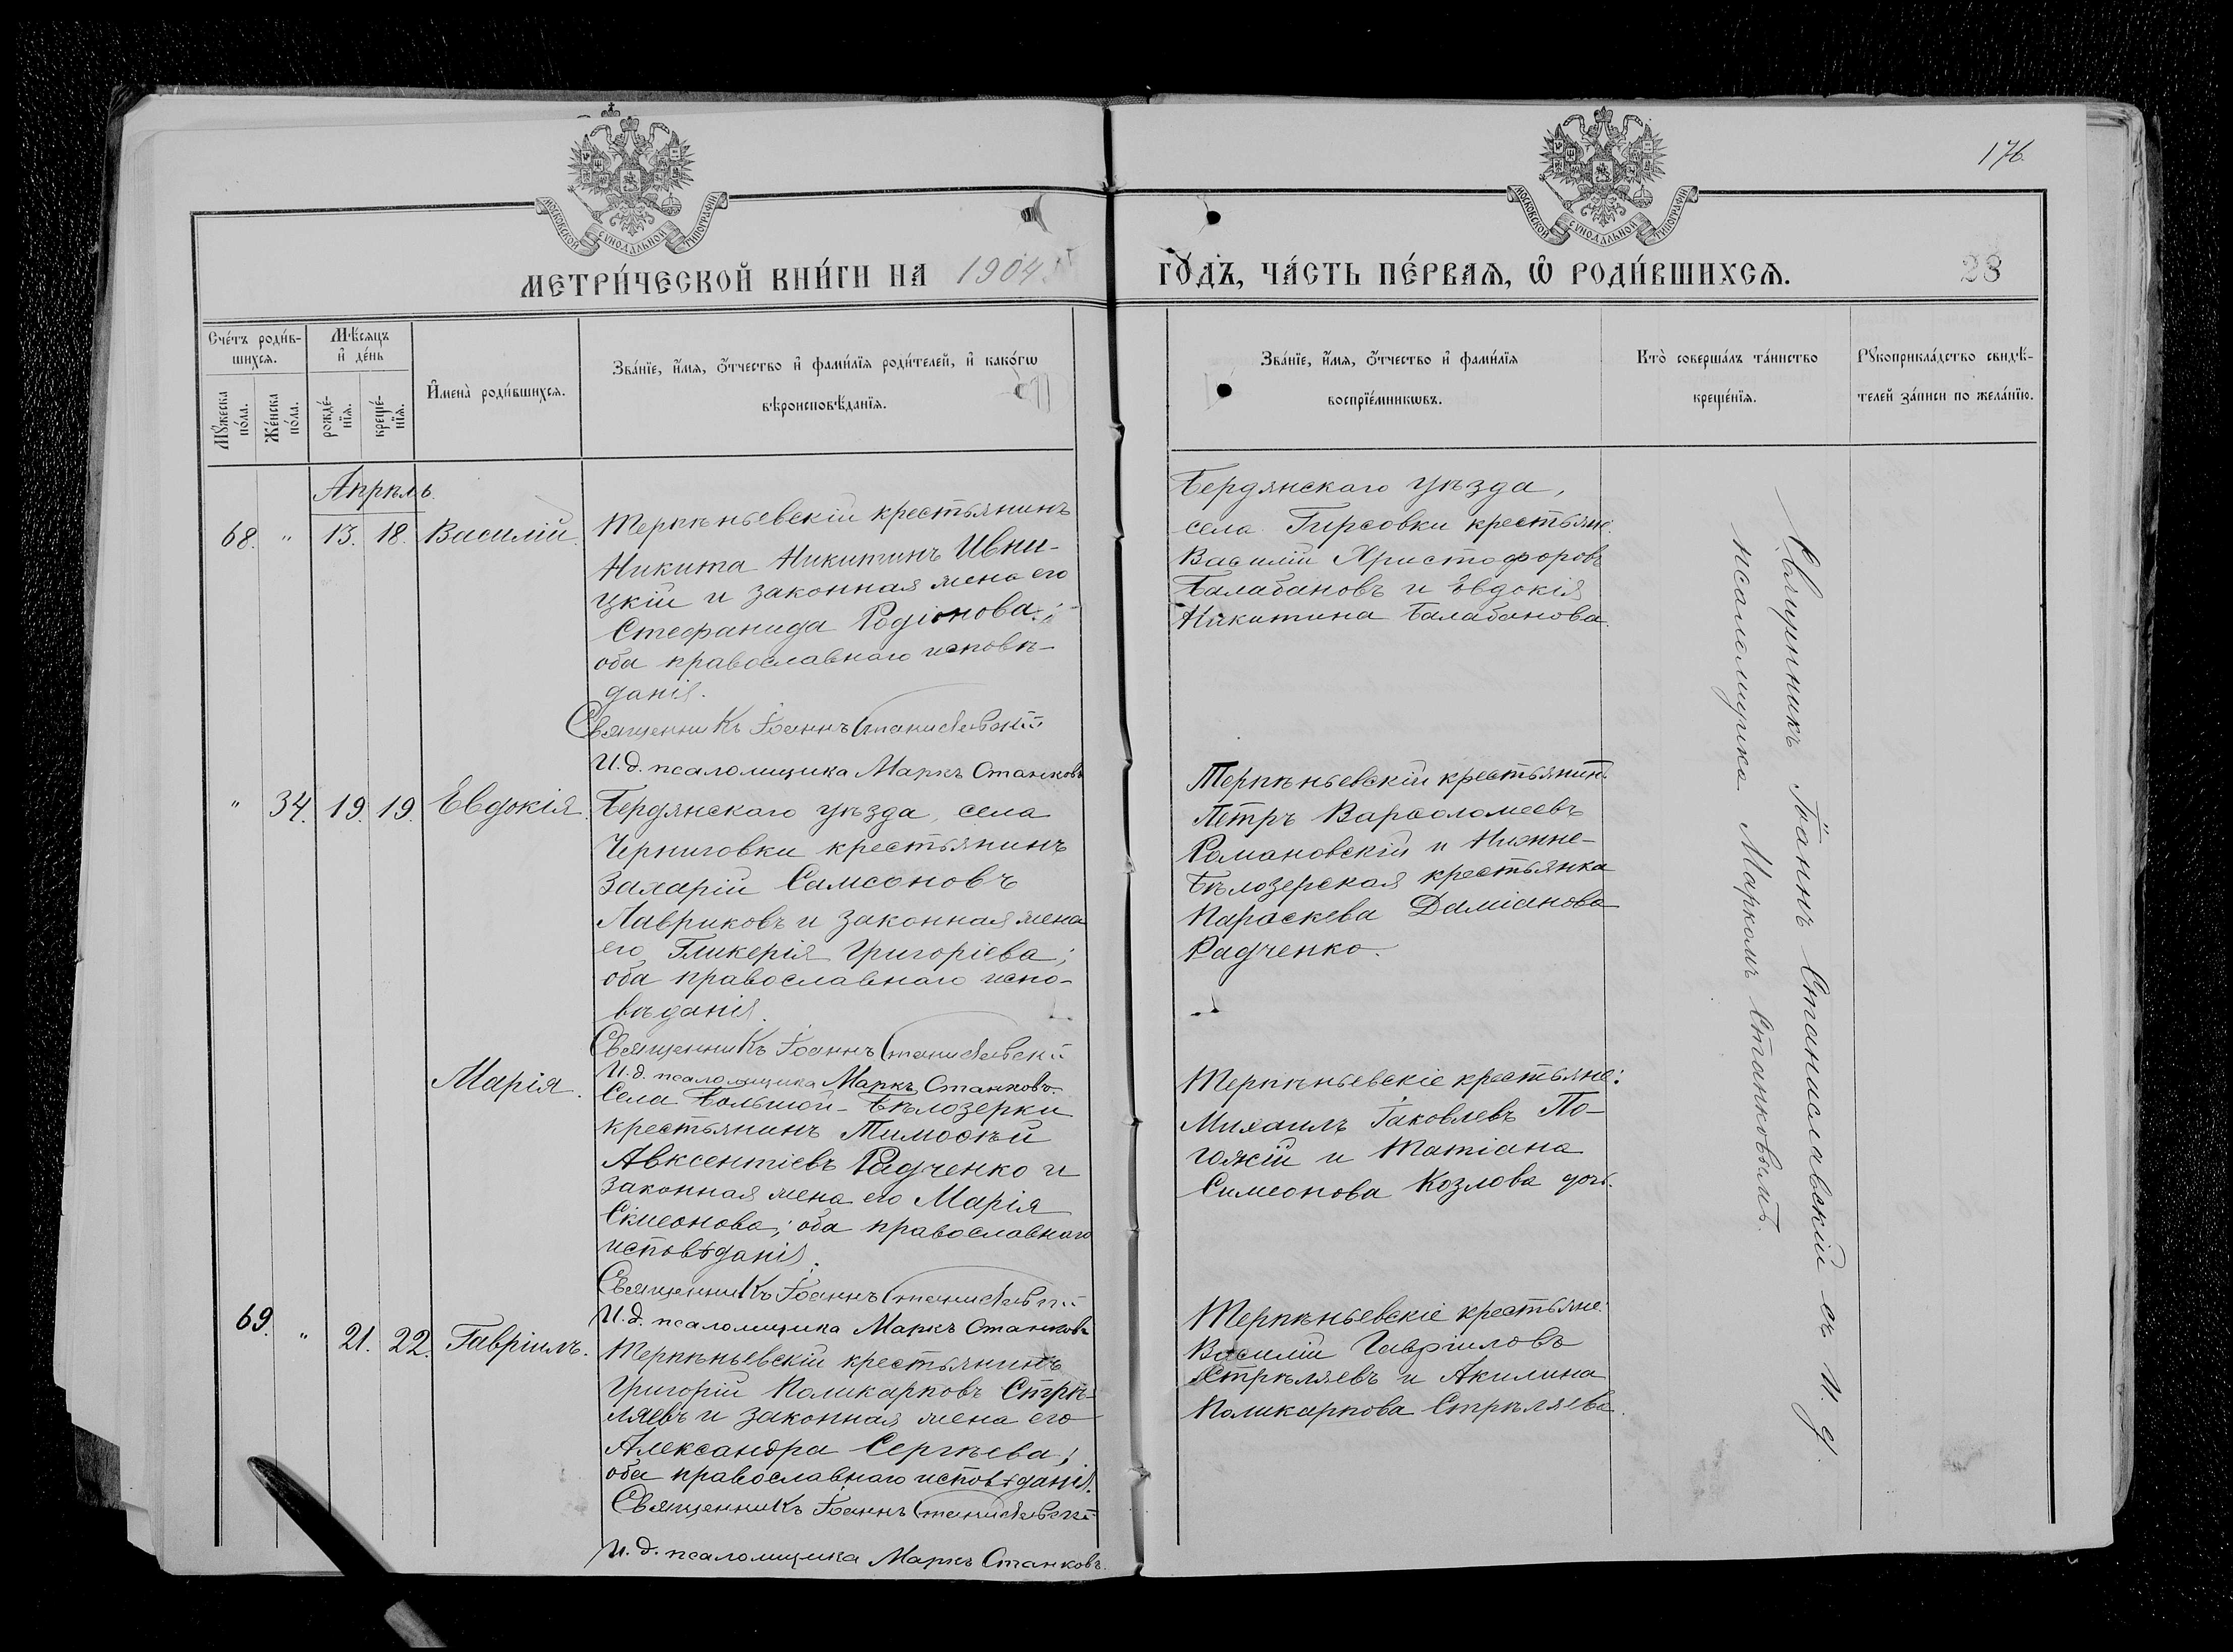 176
МОСКОВСКОЙ СѴНОДАЛЬНОЙ ТИПОГРАФІИ
МОСКОВСКОЙ СѴНОДАЛЬНОЙ ТИПОГРАФІИ
МЕТРИ́ЧЕСКОЙ КНИ́ГИ НА 1904
ГО́ДЪ, ЧА́СТЬ ПЕ́РВАѦ, Ѡ҆ РОДИ́ВШИХСѦ.
28
Сче́тъ роди́в-
шихсѧ.
Мꙋ́жеска по́ла.
Же́нска по́ла.
Мѣ́сѧцъ
и҆ де́нь
рожде́-
нїѧ.
креще́-
нїѧ.
И҆мена̀ роди́вшихсѧ.
Зва́нїе, и҆́мѧ, ѻ҆́тчество и҆ фами́лїѧ роди́телей, и҆ како́гѡ
вѣроисповѣ́данїѧ.
Зва́нїе, и҆́мѧ, ѻ҆́тчество и҆ фами́лїѧ
воспрїе́мникѡвъ.
Кто̀ соверша́лъ та́инство
креще́нїѧ.
Рꙋкоприкла́дство свидѣ́-
телей за́писи по жела́нїю.
Апрѣль.
68. " 13. 18. Василій.
Терпѣньевскій крестьянинъ
Никита Никитинъ Ивни-
цкій и законная жена его
Стефанида Родіонова;
оба православнаго исповѣ-
данія.
Священникъ Іоаннъ Станиславскій
И.д. псаломщика Маркъ Станковъ
Бердянскаго уѣзда,
села Гирсовки крестьяне:
Василій Христофоровъ
Балабановъ и Евдокія
Никитина Балабанова.
" 34. 19. 19. Евдокія.
Бердянскаго уѣзда, села
Черниговки крестьянинъ
Захарій Самсоновъ
Лавриковъ и законная жена
его Гликерія Григоріева;
оба православнаго испо-
вѣданія.
Священникъ Іоаннъ Станиславскій
И.д. псаломщика Маркъ Станковъ.
Терпѣньевскій крестьянинъ
Петръ Варѳоломеевъ
Романовскій и Нижне-
Бѣлозерская крестьянка
Параскева Даміанова
Радченко.
Марія.
Села Большой-Бѣлозерки
крестьянинъ Тимоѳей
Авксентіевъ Радченко и
законная жена его Марія
Сімеонова; оба православнаго
исповѣданія.
Священникъ Іоаннъ Станиславскій
И.д. псаломщика Маркъ Станковъ
Терпѣньевскіе крестьяне:
Михаилъ Іаковлевъ По-
гожій и Татіана
Симеонова Козлова дочь.
69. " 21. 22. Гавріилъ.
Терпѣньевскій крестьянинъ
Григорій Поликарповъ Стрѣ-
ляевъ и законная жена его
Александра Сергѣева;
оба православнаго исповѣданія.
Священникъ Іоаннъ Станиславскій
И.д. псаломщика Маркъ Станковъ.
Терпѣньевскіе крестьяне:
Василій Гавріиловъ
Стрѣляевъ и Акилина
Поликарпова Стрѣляева.
Священникъ Іоаннъ Станиславскій съ И. д.
псаломщика Маркомъ Станковымъ.